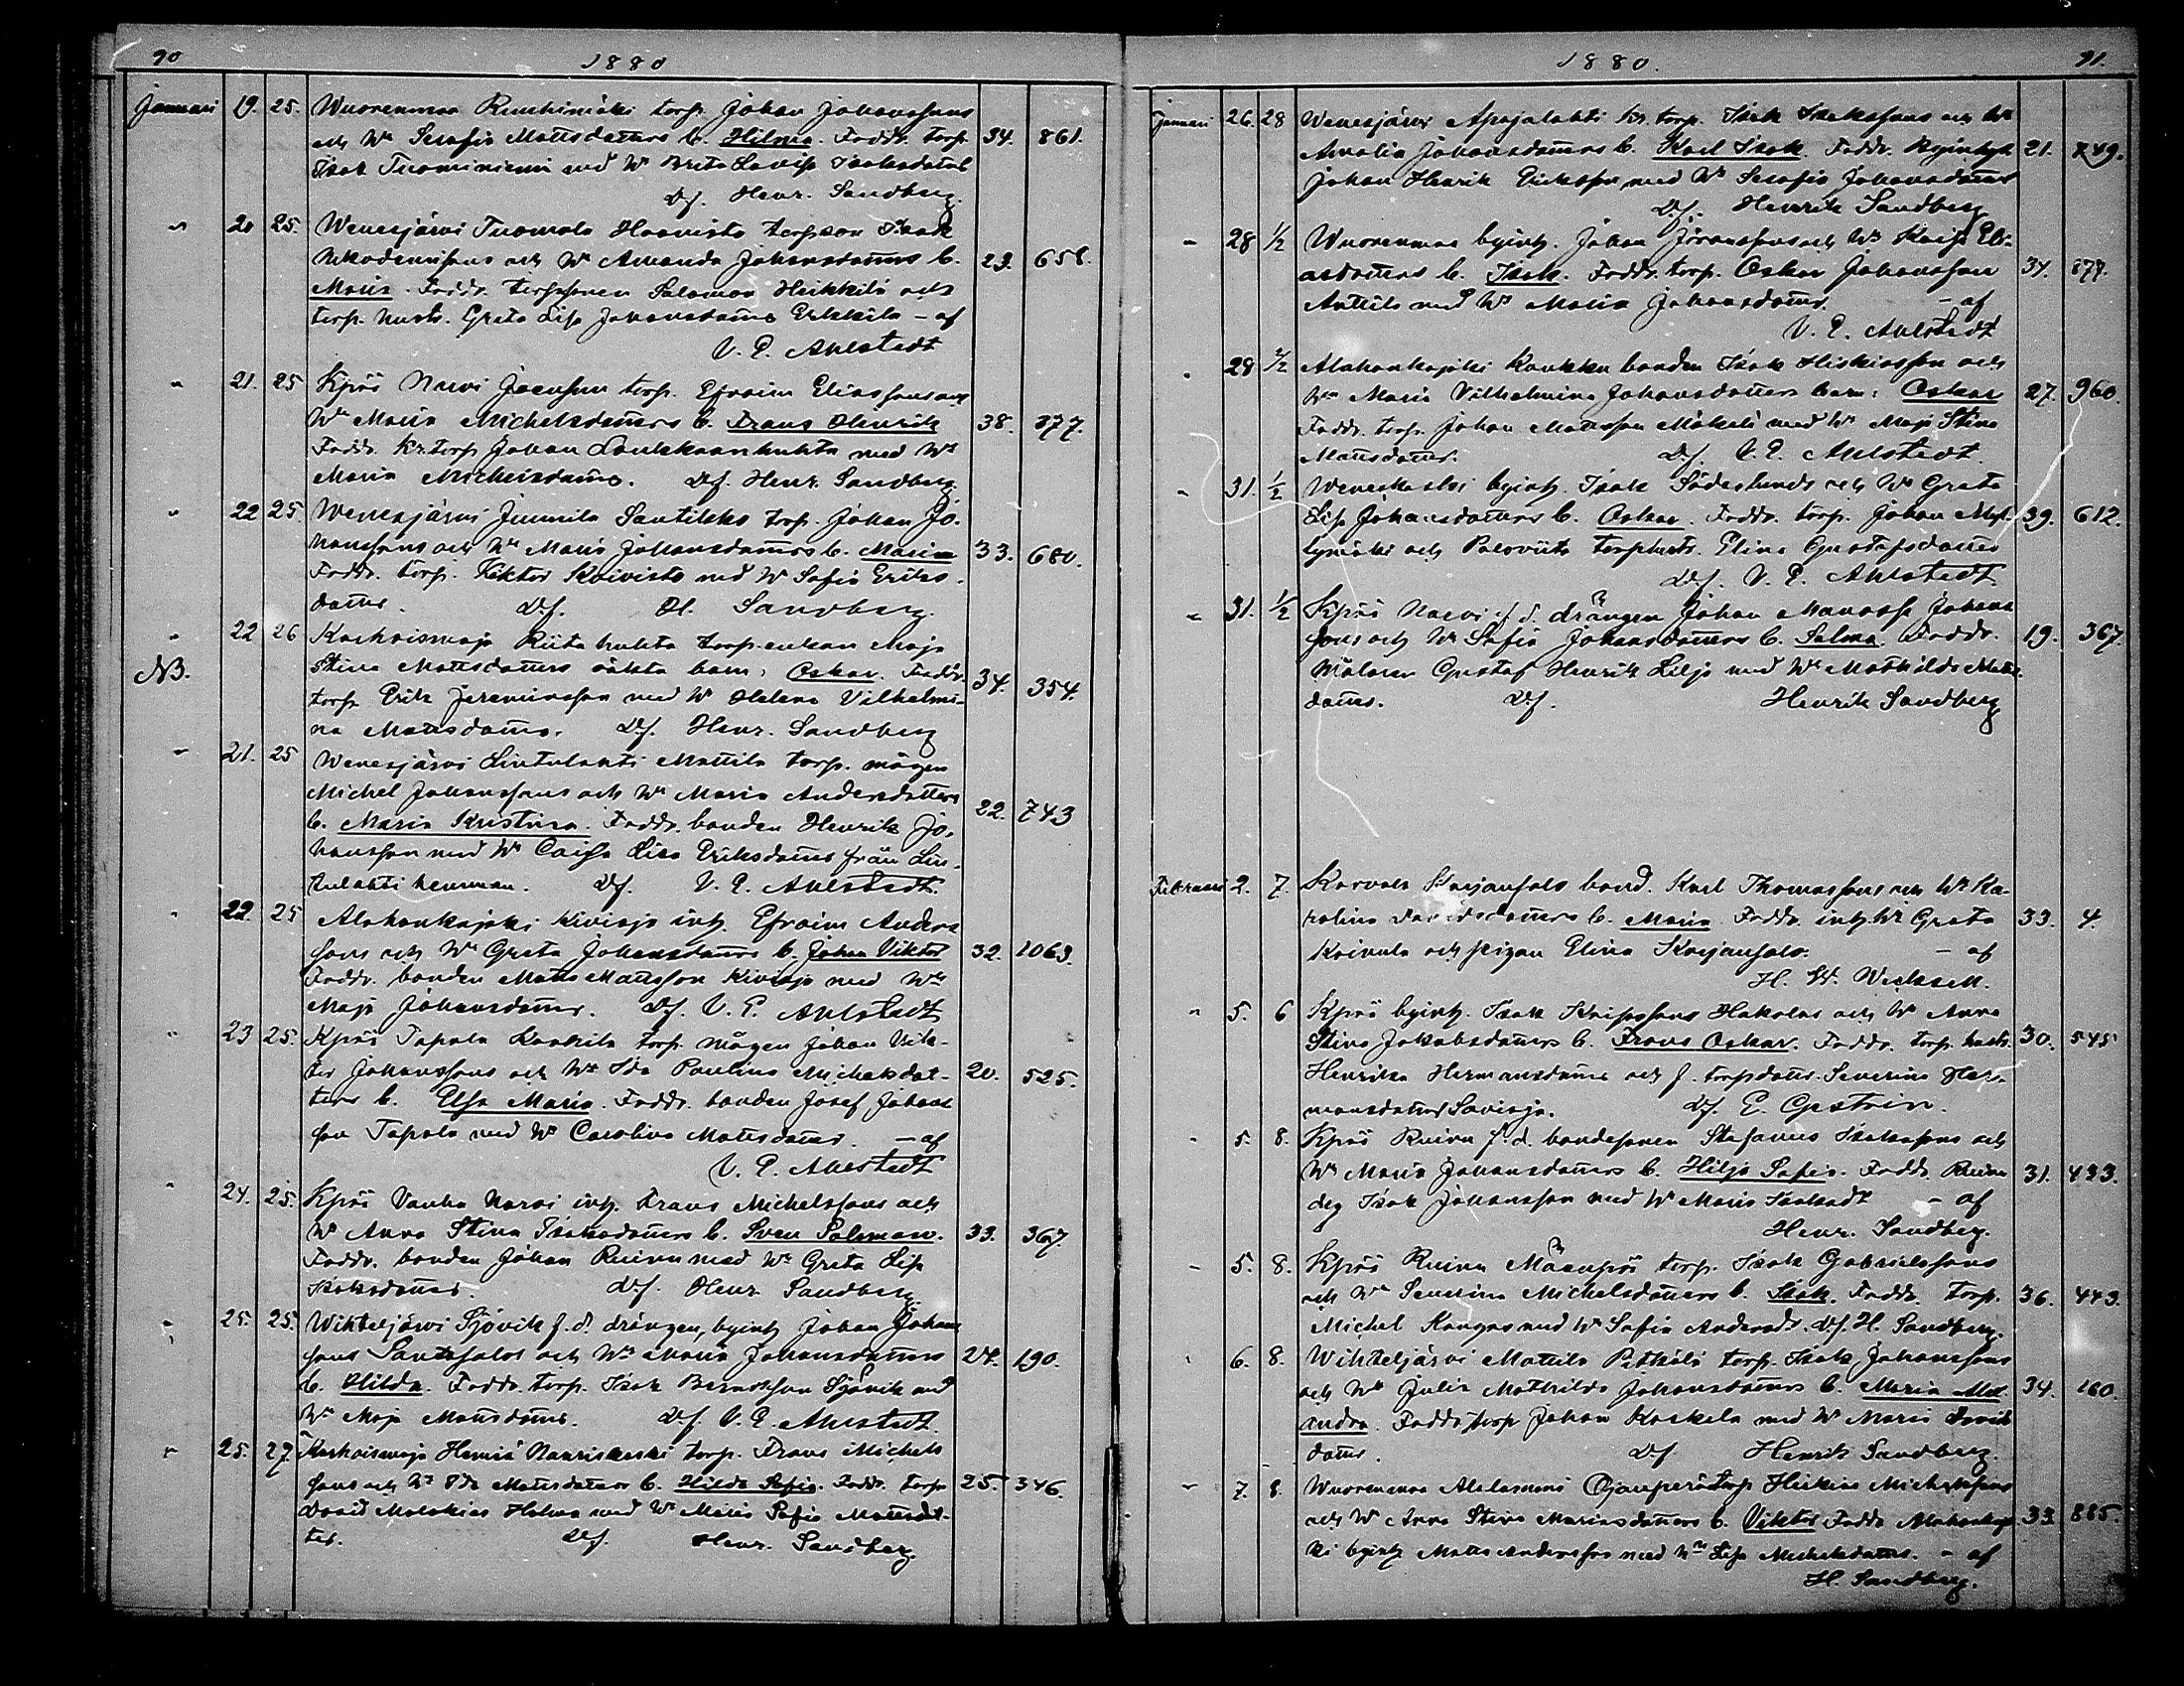 90 1880
Januari 19. 25. Wuorenmaa torp. Johan Johanssons
och W Serafia Mattsdotters b. Hilma. Faddr. torp. 34. 861.
Isak Tuominiemi med W Brita Lovisa Isaksdotter
Df. Henr. Sandberg.
" 20 25. Wenesjärvi Tuomola Haavisto torpson Isak
Nikodemussons och W Amanda Johansdotters b. 23. 658.
Maria. Faddr. torpsonen Salomon Heikkilä och
torp. hustr. Greta Lisa Johansdotter Erkkilä - af
V. E. Ahlstedt
" 21. 25 Kpää Narvi torp. Efraim Eliassons och
W Maria Michelsdotters b. Frans Henrik 38. 377.
Faddr. Kr. torp Johan Laukkaanhuhta med W
Maria Michelsdotter. Df. Henr. Sandberg.
" 22 25. Wenesjärvi Jumila Santikko torp. Johan Jo-
hanssons och W Maria Johansdotters b. Maria 33. 680.
Faddr. torp. Viktor Koivisto med W Sofia Eriks-
dotter. Df. H. Sandberg.
" 22 26 Karhoismaja Riitahuhta torp. enkan Maja
NB. Stina Mattsdotters oäkta barn: Oskar. Faddr. 34. 354.
torp. Erik Jeremiasson med W Helena Vilhelmi-
na Mattsdotter. Df. Henr. Sandberg
" 21. 25 Wenesjärvi Lintulahti Mattila torp. mågen
Michel Johanssons och W Maria Andersdotters 22. 743
b. Maria Kristina. Faddr. bonden Henrik Jo-
hansson med W Caisa Lisa Eriksdotter från Lin-
tulahti hemman. Df. V. E. Ahlstedt.
" 22. 25 Alahonkajoki Kivioja inh. Efraim Anders
sons och W Greta Johansdotters b. Johan Viktor 32. 1063.
Faddr. bonden Matts Mattsson Kivioja med W
Maja Johansdotter. Df. V. E. Ahlstedt
" 23 25. Kpää Tapala Koskila torp. mågen Johan Vik-
tor Johanssons och W Ida Paulina Michelsdot- 20. 525.
ters b. Elsa Maria. Faddr. bonden Josef Johans
son Tapala med W Carolina Mattsdotter. - af
V. E. Ahlstedt
" 24. 25. Kpää Vanha Narvi inh. Frans Michelssons och
W Anna Stina Isaksdotters b. Sven Salomon. 33. 367.
Faddr. bonden Johan Ruinu med W Greta Lisa
Isaksdotter. Df. Henr. Sandberg.
" 25. 25. Wihteljärvi Sjövik f. d. drängen, byinh Johan Johans
sons Santasalos och W Maria Johansdotters 24. 190.
b. Hilda. Faddr. torp. Isak Sjövik med
W Maja Mattsdotter. Df. V. E. Ahlstedt.
" 25. 27. Karhoismaja Heiniä Nauriskoski torp. Frans Michels
sons och W Ida Mattsdotters b. Hilda Sofia. Faddr. torp 25. 346.
David Malakias Holma med W Maria Sofia Mattsdot-
ter. Df. Henr. Sandberg.
1880. 91.
Januari 26. 28 Wenesjärvi Apajalahti kr. torp. Isak Isakssons och W
Amalia Johansdotters b. Karl Isak. Faddr. 21. 749.
Johan Henrik Eriksson med W Serafia Johansdotter
Df. Henrik Sandberg
" 28 1/2 Wuorenmaa byinh. Johan och W Kaisa Eli-
asdotters b. Isak. Faddr. torp. Oskar Johansson 34. 877.
Anttila med W Maria Johansdotter. - af
V. E. Ahlstedt
" 28 1/2 Alahonkajoki Kaukku bonden Isak Hiskiasson och
W Maria Vilhelmina Johansdotters barn: Oskar 27. 960.
Faddr. torp. Johan Mattsson Mäkelä med W Maja Stina
Mattsdotter. Df. V. E. Ahlstedt.
" 31. 1/2 Weneskoski byinh. Isak Söderlunds och W Greta
Lisa Johansdotters b. Oskar. Faddr. torp. Johan 39. 612.
och Paloviita torphustr. Elina Gustafsdotter
Df. V. E. Ahlstedt
" 31. 1/2 Kpää Narvi f. d. drängen Johan Manasse Johans
sons och W Sofia Johansdotters b. Salma. Faddr. 19. 367.
Målaren Gustaf Henrik Lilja med W Mathilda
dotter. Df. Henrik Sandberg
Februari 2. 7. Karvala Korjansalo bond. Karl Thomassons och W Ka-
rolina Davidsdotters b. Maria. Faddr. inh. W Greta 33. 4.
Koivula och pigan Elina Korjansalo. - af
H. W. Wicksell.
" 5. 6 Kpää byinh. Isak Hakolas och W Anna
Stina Jakobsdotters b. Frans Oskar. Faddr. torp. hustr. 30. 545
Henrika Hermansdotter och f. torpdottr. Severina Her-
mansdotter Savioja. Df. E. Gestrin.
" 5. 8. Kpää Ruinu f. d. bondesonen Stefanus Isakssons och
W Maria Johansdotters b. Hilja Sofia. Faddr. Ruinu 31. 433.
dr Isak Johansson med W Maria Isaksdr - af
Henr. Sandberg.
" 5. 8. Kpää Ruinu Määnpää torp. Isak Gabrielssons
och W Severina Michelsdotters b. Isak. Faddr. torp. 36. 443.
Michel Kangas med W Sofia Andersdr. Df. H. Sandberg.
" 6. 8. Wihteljärvi Mattila Pitkälä torp. Isak Johanssons
och W Julia Mathilda Johansdotters b. Maria Alex- 34. 160.
andra. Faddr. torp Johan Koskela med W Maria Davids
dotter. Df. Henrik Sandberg.
" 7. 8. Wuorenmaa Alalammi Ojanperä torp Hiskias Michelssons
och W Anna Stina Mariasdotters b. Viktor. Faddr. Alahonkajo- 33. 885.
ki byinh Matts Andersson med W Lisa Michelsdotter. - af
H. Sandberg.